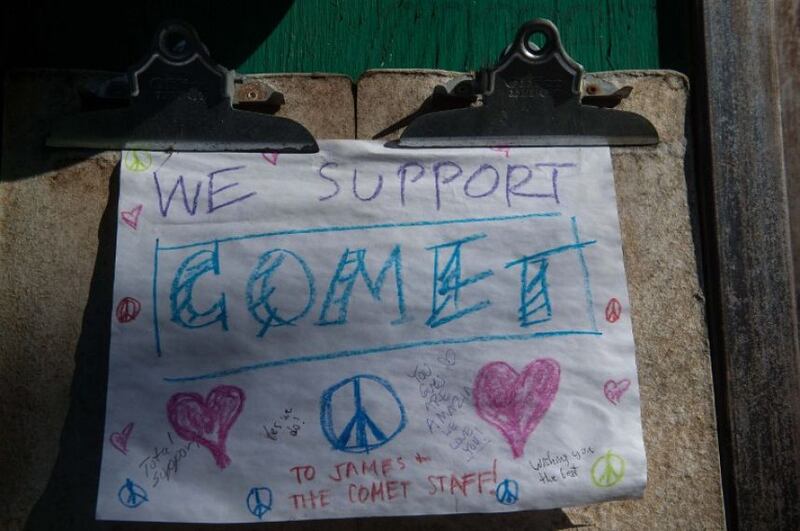 WE SUPPORT
COMET
Total
support
Yes we
do!
YOU
GUYS
ARE
AMAZING
WE
LOVE
YOU!
Wishing you
the best
TO JAMES +
THE COMET STAFF!